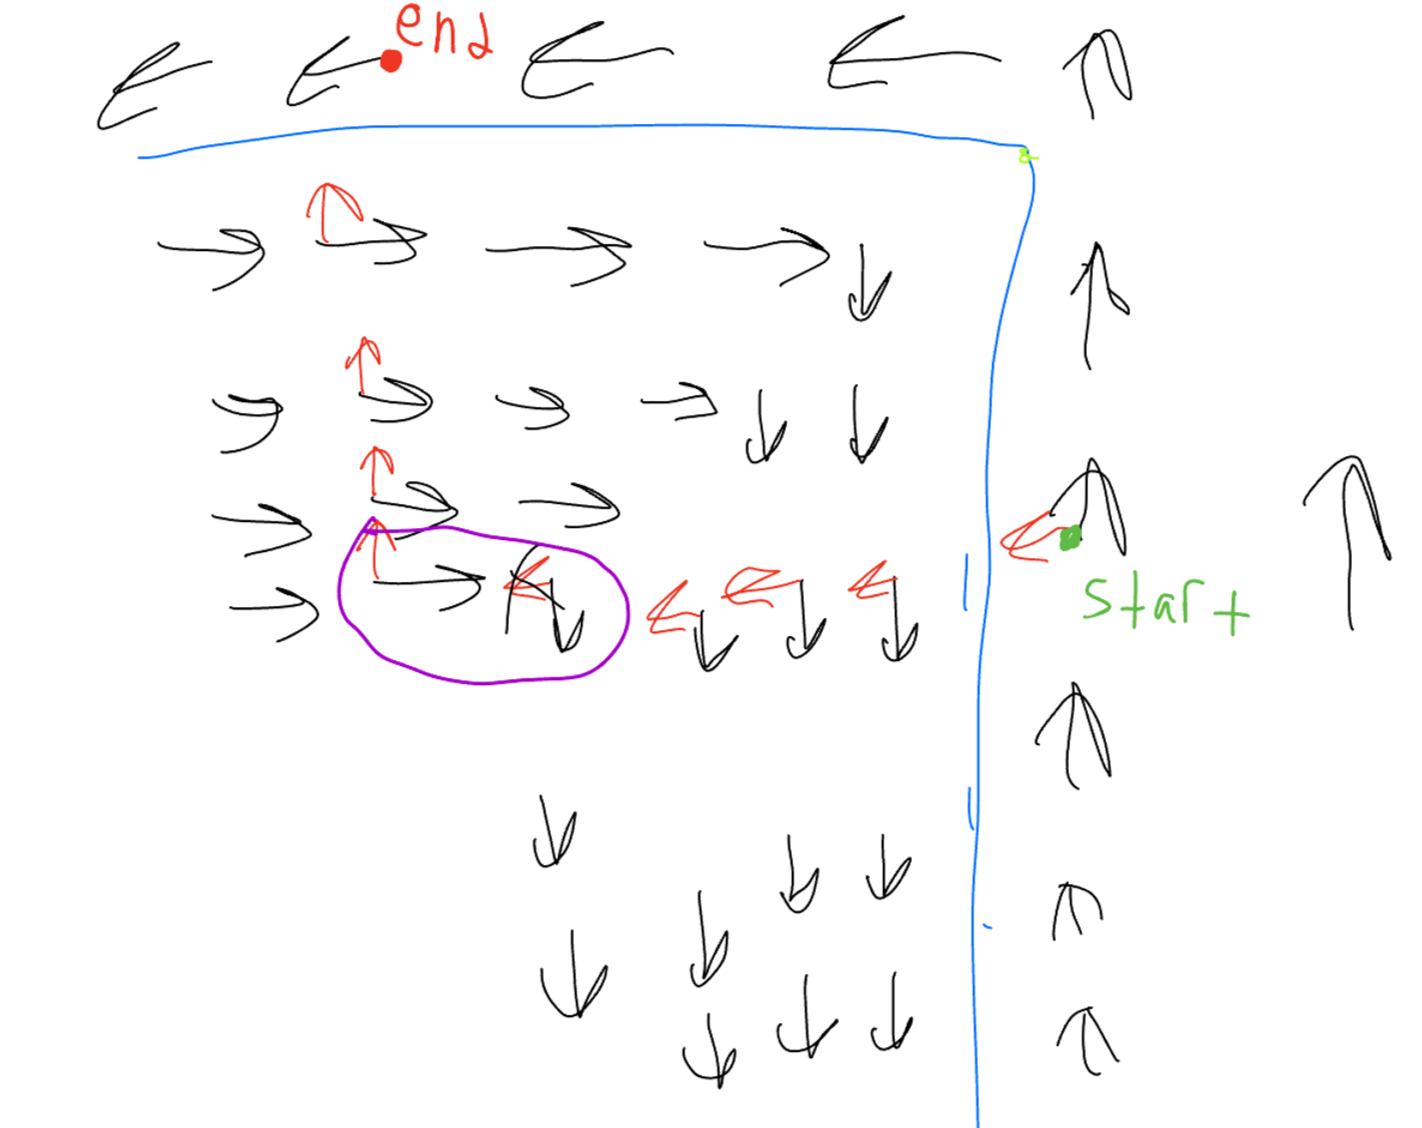 end
start